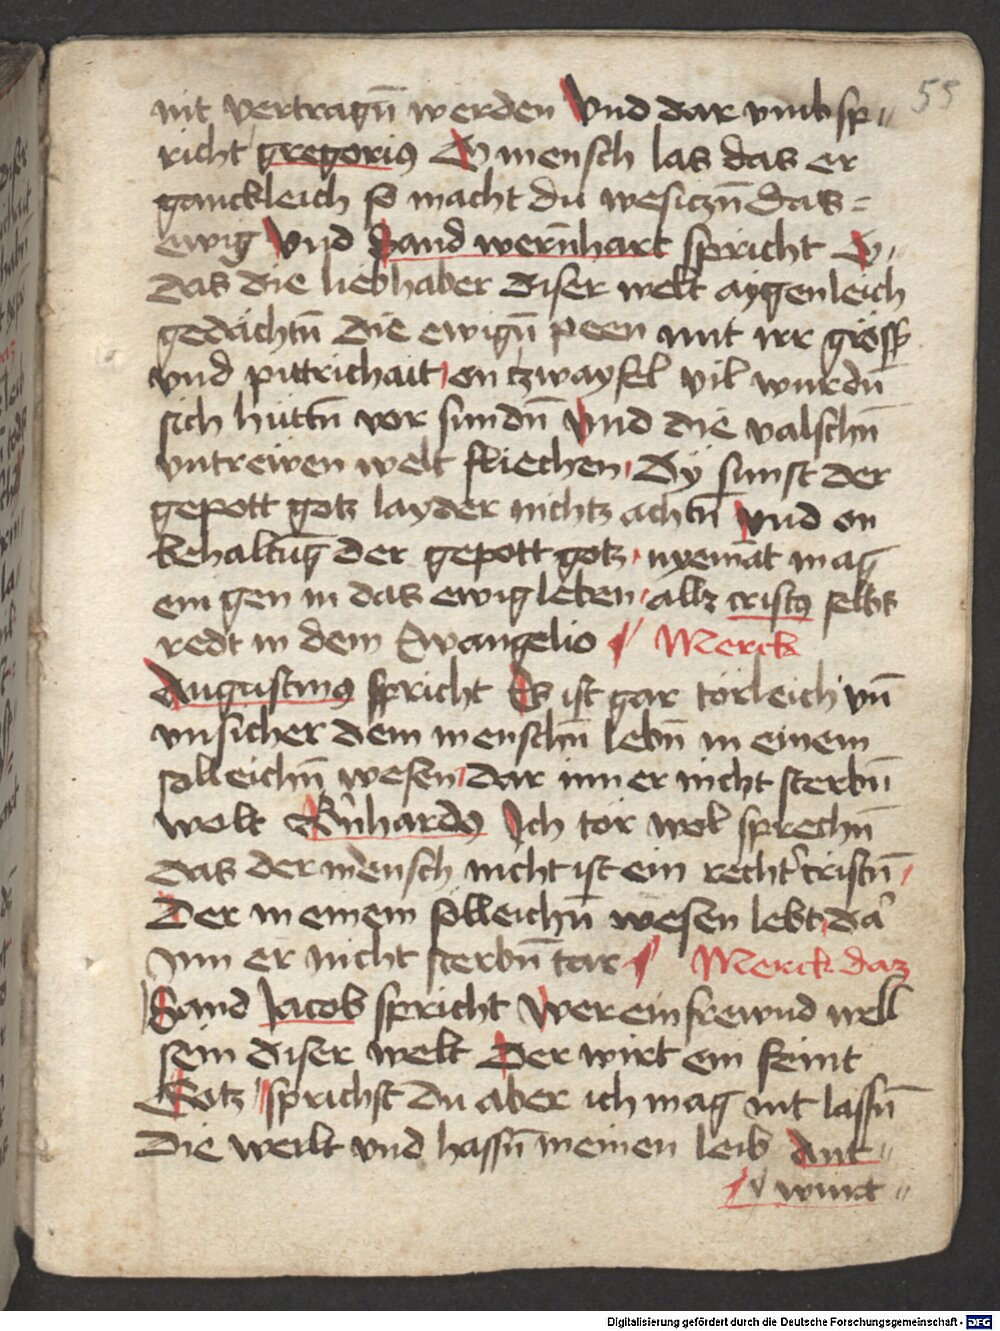 55
nit vertragn̄ werden Vnd dar vmb sp„
richt gregorius O mensch las das er
gauckleich so macht du wesiczn̄ das =
ewig Vnd Sand wern̄hart spricht O„
das die liebhaber diser welt aygenleich
gedächtn̄ die ewign̄ peen mit irr gröss
vnd pittrichait on zwayfel vil wurdn̄
sich hüttn̄ vor sundn̄ Vnd die valschn̄
vntrewen welt fliechen Dÿ sunst der
gepott gotz layder nichtz achtn̄ Vnd on
behaltūg der gepott gotz nyemāt mag
ein gen in das ewig leben allz cristus selbs
redt in dem Ewangelio Merck
Augustinus spricht Es ist gar törleich vn̄
vnsicher dem menschn̄ lebn̄ in einem
solleichn̄ wesen dar inn er nicht sterbn̄
wolt Bernhardus Ich tör wol sprechn̄
das der mensch nicht ist ein recht' cristn̄
Der in einem solleichn̄ wesen lebt da'
Inn er nicht sterbn̄ tar Merck daz
Sand Jacob spricht Wer ein frewnd well
sein diser welt Der wirt ein feint
Gotz sprichst du aber ich mag nit lassn̄
Die welt vnd hassn̄ meinen leib Ant„
wurt„
Digitalisierung gefördert durch die Deutsche Forschungsgemeinschaft - DFG